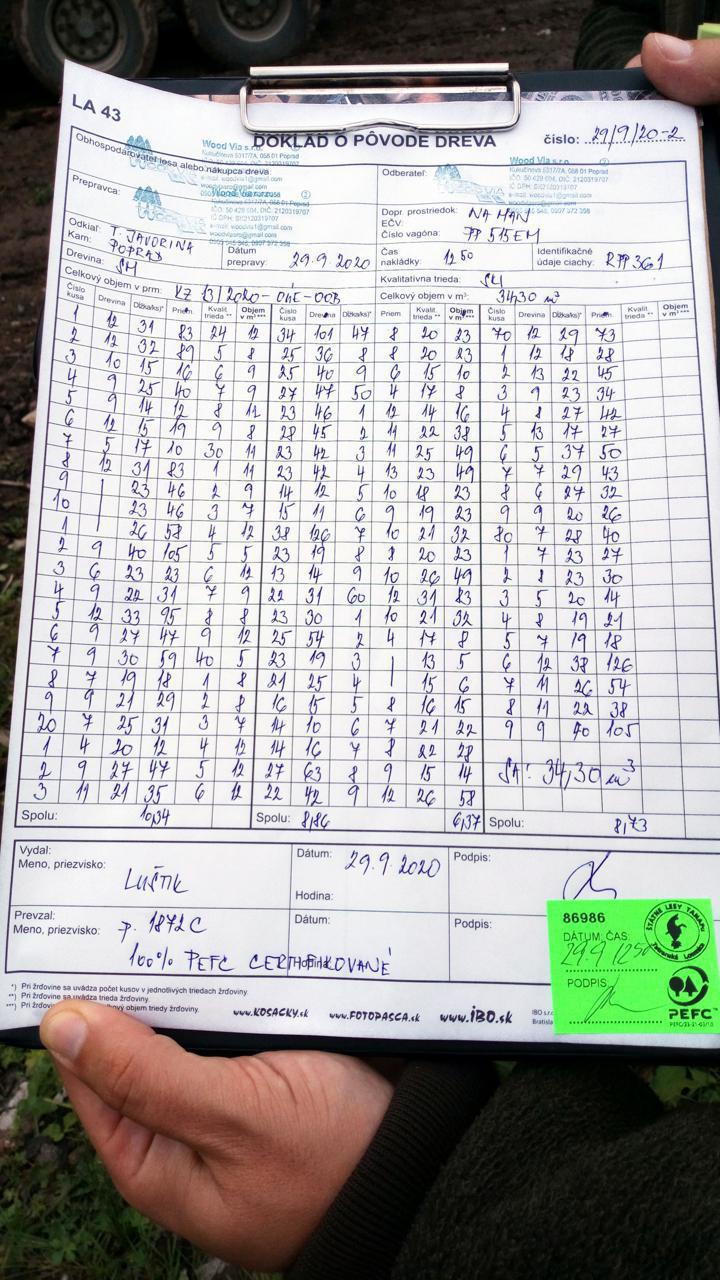 LA 43
DOKLAD O PÔVODE DREVA
číslo: 29/9/20-2
Obhospodarovateľ lesa alebo nákupca dreva:
Wood Via s.r.o.
Kukučínova 5317/7A, 058 01 Poprad
Odberateľ:
Prepravca:
Dopr. prostriedok: NA MAN
EČV:
Číslo vagóna: PP 515EM
Odkiaľ: T. JAVORINA
Kam: POPRAD
Dátum prepravy: 29.9.2020
Čas nakládky: 12 50
Identifikačné údaje ciachy: RPP361
Drevina: SM
Kvalitatívna trieda:
Celkový objem v prm: KZ 13/2020-OhE-OOB
Celkový objem v m³: 34,30 m³
Číslo kusa Drevina Dĺžka/ks)* Priem. Kvalit. trieda ** Objem v m³ *** Číslo kusa Drevina Dĺžka/ks)* Priem. Kvalit. trieda ** Objem v m³ *** Číslo kusa Drevina Dĺžka/ks)* Priem. Kvalit. trieda ** Objem v m³ ***
1 12 31 83 24 12 34 101 47 8 20 23 70 12 29 73
2 12 32 89 5 8 25 36 8 8 20 23 1 12 18 28
3 10 15 16 6 9 25 40 9 6 15 10 2 13 22 45
4 9 25 40 7 9 27 47 50 4 17 8 3 9 23 34
5 9 14 12 8 11 23 46 1 12 14 16 4 8 27 42
6 12 15 19 9 8 28 45 2 11 22 38 5 13 17 27
7 5 17 10 30 11 23 42 3 11 25 49 6 5 37 50
8 12 31 83 1 11 23 42 4 13 23 49 7 7 29 43
9 | 23 46 2 9 14 12 5 10 18 23 8 6 27 32
10 | 23 46 3 7 15 11 6 9 19 23 9 9 20 26
1 | 26 58 4 12 38 126 7 10 21 32 80 7 28 40
2 9 40 105 5 5 23 19 8 8 20 23 1 7 23 27
3 6 23 23 6 12 13 14 9 10 26 49 2 8 23 30
4 9 22 31 7 9 22 31 60 12 31 83 3 5 20 14
5 12 33 95 8 8 23 30 1 10 21 32 4 8 19 21
6 9 27 47 9 12 25 54 2 4 17 8 5 7 19 18
7 9 30 59 40 5 23 19 3 | 13 5 6 12 38 126
8 7 19 18 1 8 21 25 4 | 15 6 7 11 26 54
9 9 21 29 2 8 16 15 5 8 16 15 8 11 22 38
20 7 25 31 3 7 14 10 6 7 21 22 9 9 40 105
1 4 20 12 4 12 14 16 7 8 22 28
2 9 27 47 5 12 27 63 8 9 15 14 SA: 34,30 m³
3 11 21 35 6 12 22 42 9 12 26 58
Spolu: 10,34 Spolu: 8,86 6,37 Spolu: 8,73
Vydal:
Meno, priezvisko: LUŠTIK
Dátum: 29.9.2020
Hodina:
Podpis:
Prevzal:
Meno, priezvisko: p. 1872C
Dátum:
Podpis:
100% PEFC CERTIFIKOVANÉ
*) Pri žrďovine sa uvádza počet kusov v jednotlivých triedach žrďoviny.
**) Pri žrďovine sa uvádza trieda žrďoviny.
***) Pri žrďovine celkový objem triedy žrďoviny.
www.KOSACKY.sk www.FOTOPASCA.sk www.iBO.sk
86986
DÁTUM, ČAS:
29.9 1250
PODPIS:
ŠTÁTNE LESY TANAPU
Tatranská Lomnica
PEFC